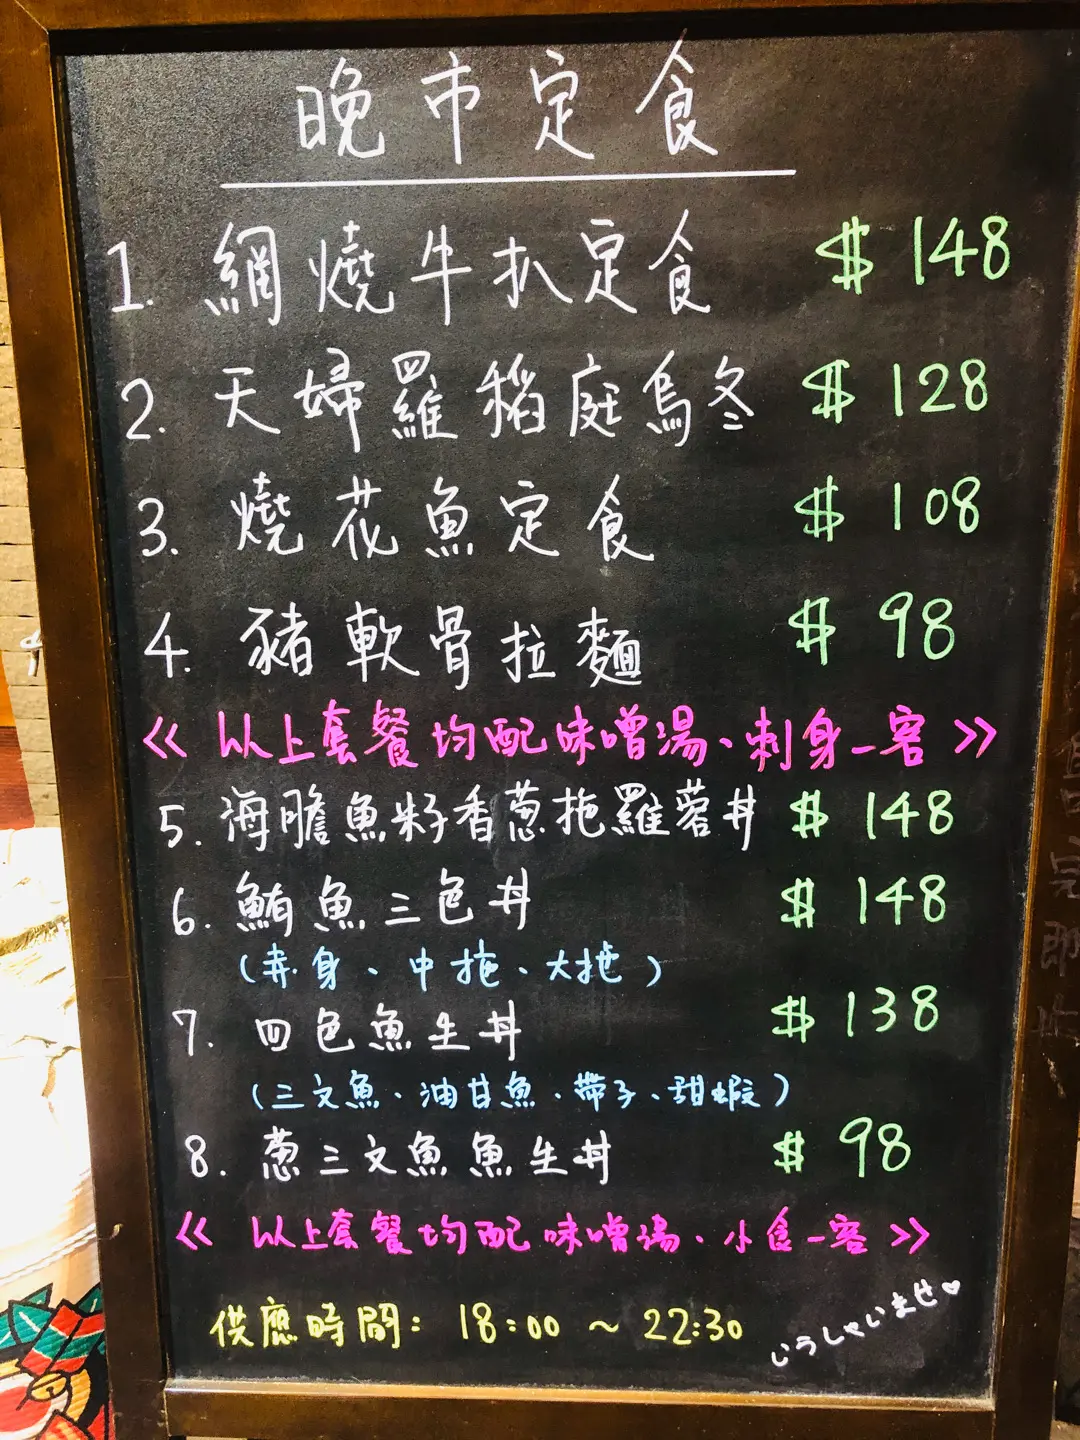 晚市定食
1. 網燒牛扒定食 $148
2. 天婦羅稻庭烏冬 $128
3. 燒花魚定食 $108
4. 豬軟骨拉麵 $98
《 以上套餐均配味噌湯、刺身一客 》
5. 海膽魚籽香蔥拖羅蓉丼 $148
6. 鮪魚三色丼 $148
(赤身、中拖、大拖)
7. 四色魚生丼 $138
(三文魚、油甘魚、帶子、甜蝦)
8. 蔥三文魚魚生丼 $98
《 以上套餐均配味噌湯、小食一客 》
供應時間: 18:00 ~ 22:30